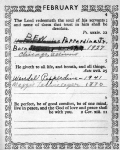 FEBRUARY
The Lord redeemeth the soul of his servants: and none of them that trust in him shall be desolate.
Ps. XXXIV. 22
BEN Pepperdine Jr.
Born 1937
Chicago, Illinois
He giveth to all life, and breath, and all things.
Acts XVII. 25
Wendel Pepperdine - 1941
1870
Be perfect, be of good comfort, be of one mind, live in peace; and the God of love and peace shall be with you.
2 Cor. XIII. 11